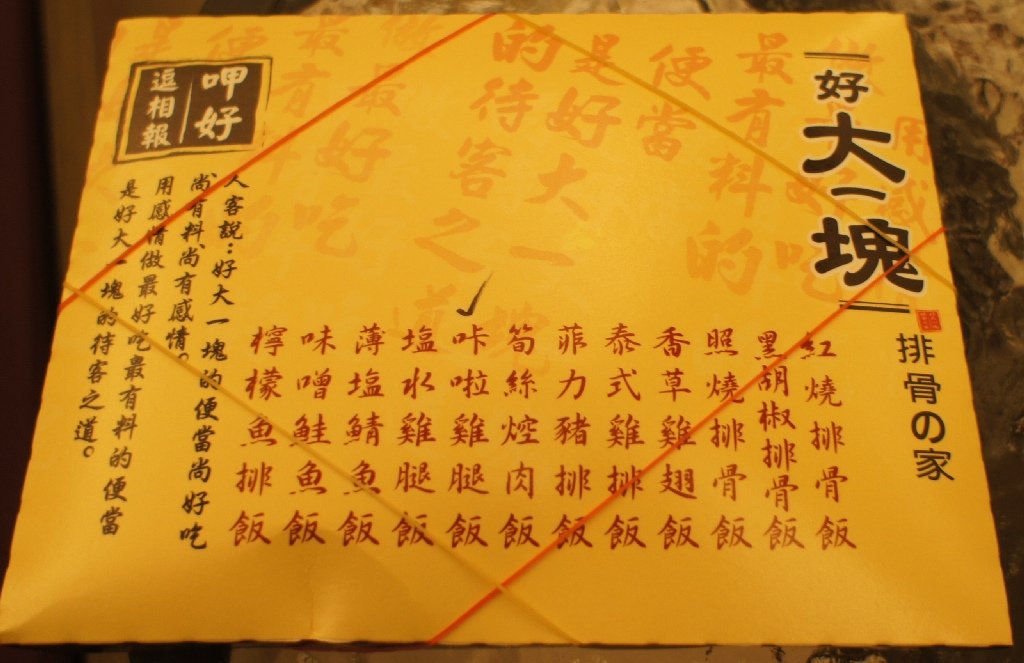 好大一塊
排骨の家
紅燒排骨飯
黑胡椒排骨飯
照燒排骨飯
香草雞翅飯
泰式雞排飯
菲力豬排飯
筍絲焢肉飯
咔啦雞腿飯
塩水雞腿飯
薄塩鯖魚飯
味噌鮭魚飯
檸檬魚排飯
呷好
逗相報
人客說：好大一塊的便當尚好吃
尚有料、尚有感情。
用感情做最好吃最有料的便當
是好大一塊的待客之道。
用感
最有料的
便當
是好大一塊
的待客之道